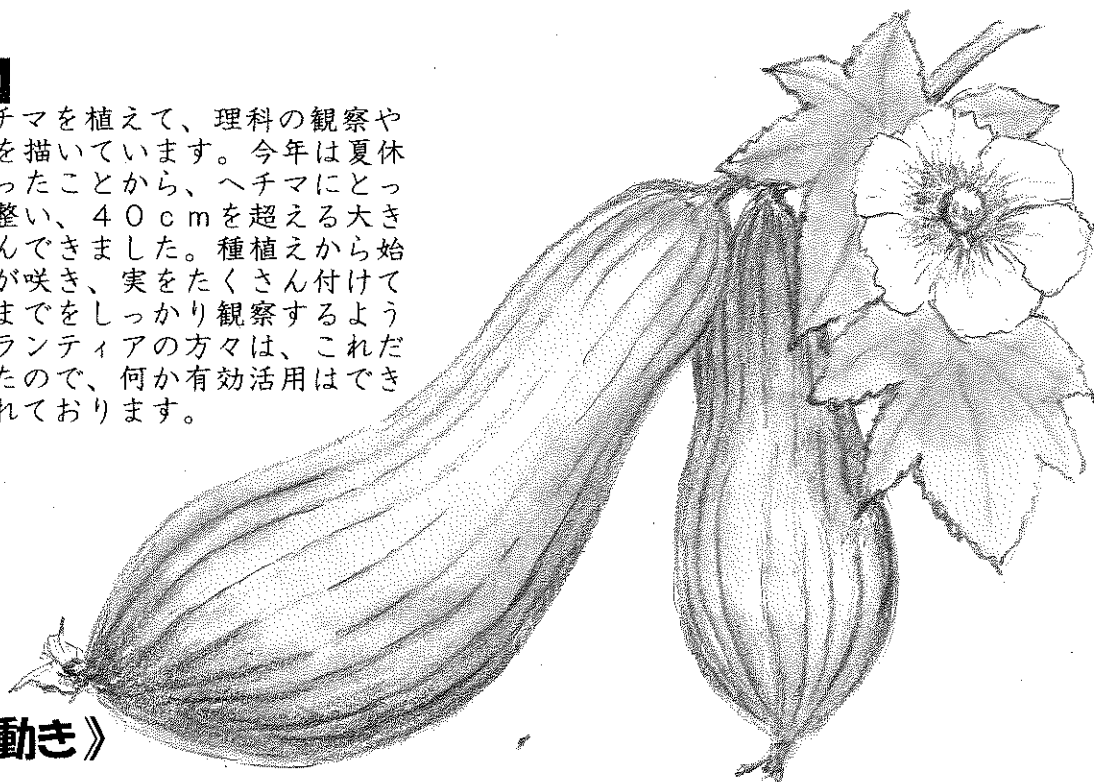 チマを植えて、理科の観察や
を描いています。今年は夏休
ったことから、ヘチマにとっ
整い、40cmを超える大き
んできました。種植えから始
が咲き、実をたくさん付けて
までをしっかり観察するよう
ランティアの方々は、これだ
たので、何か有効活用はでき
れております。
動き》